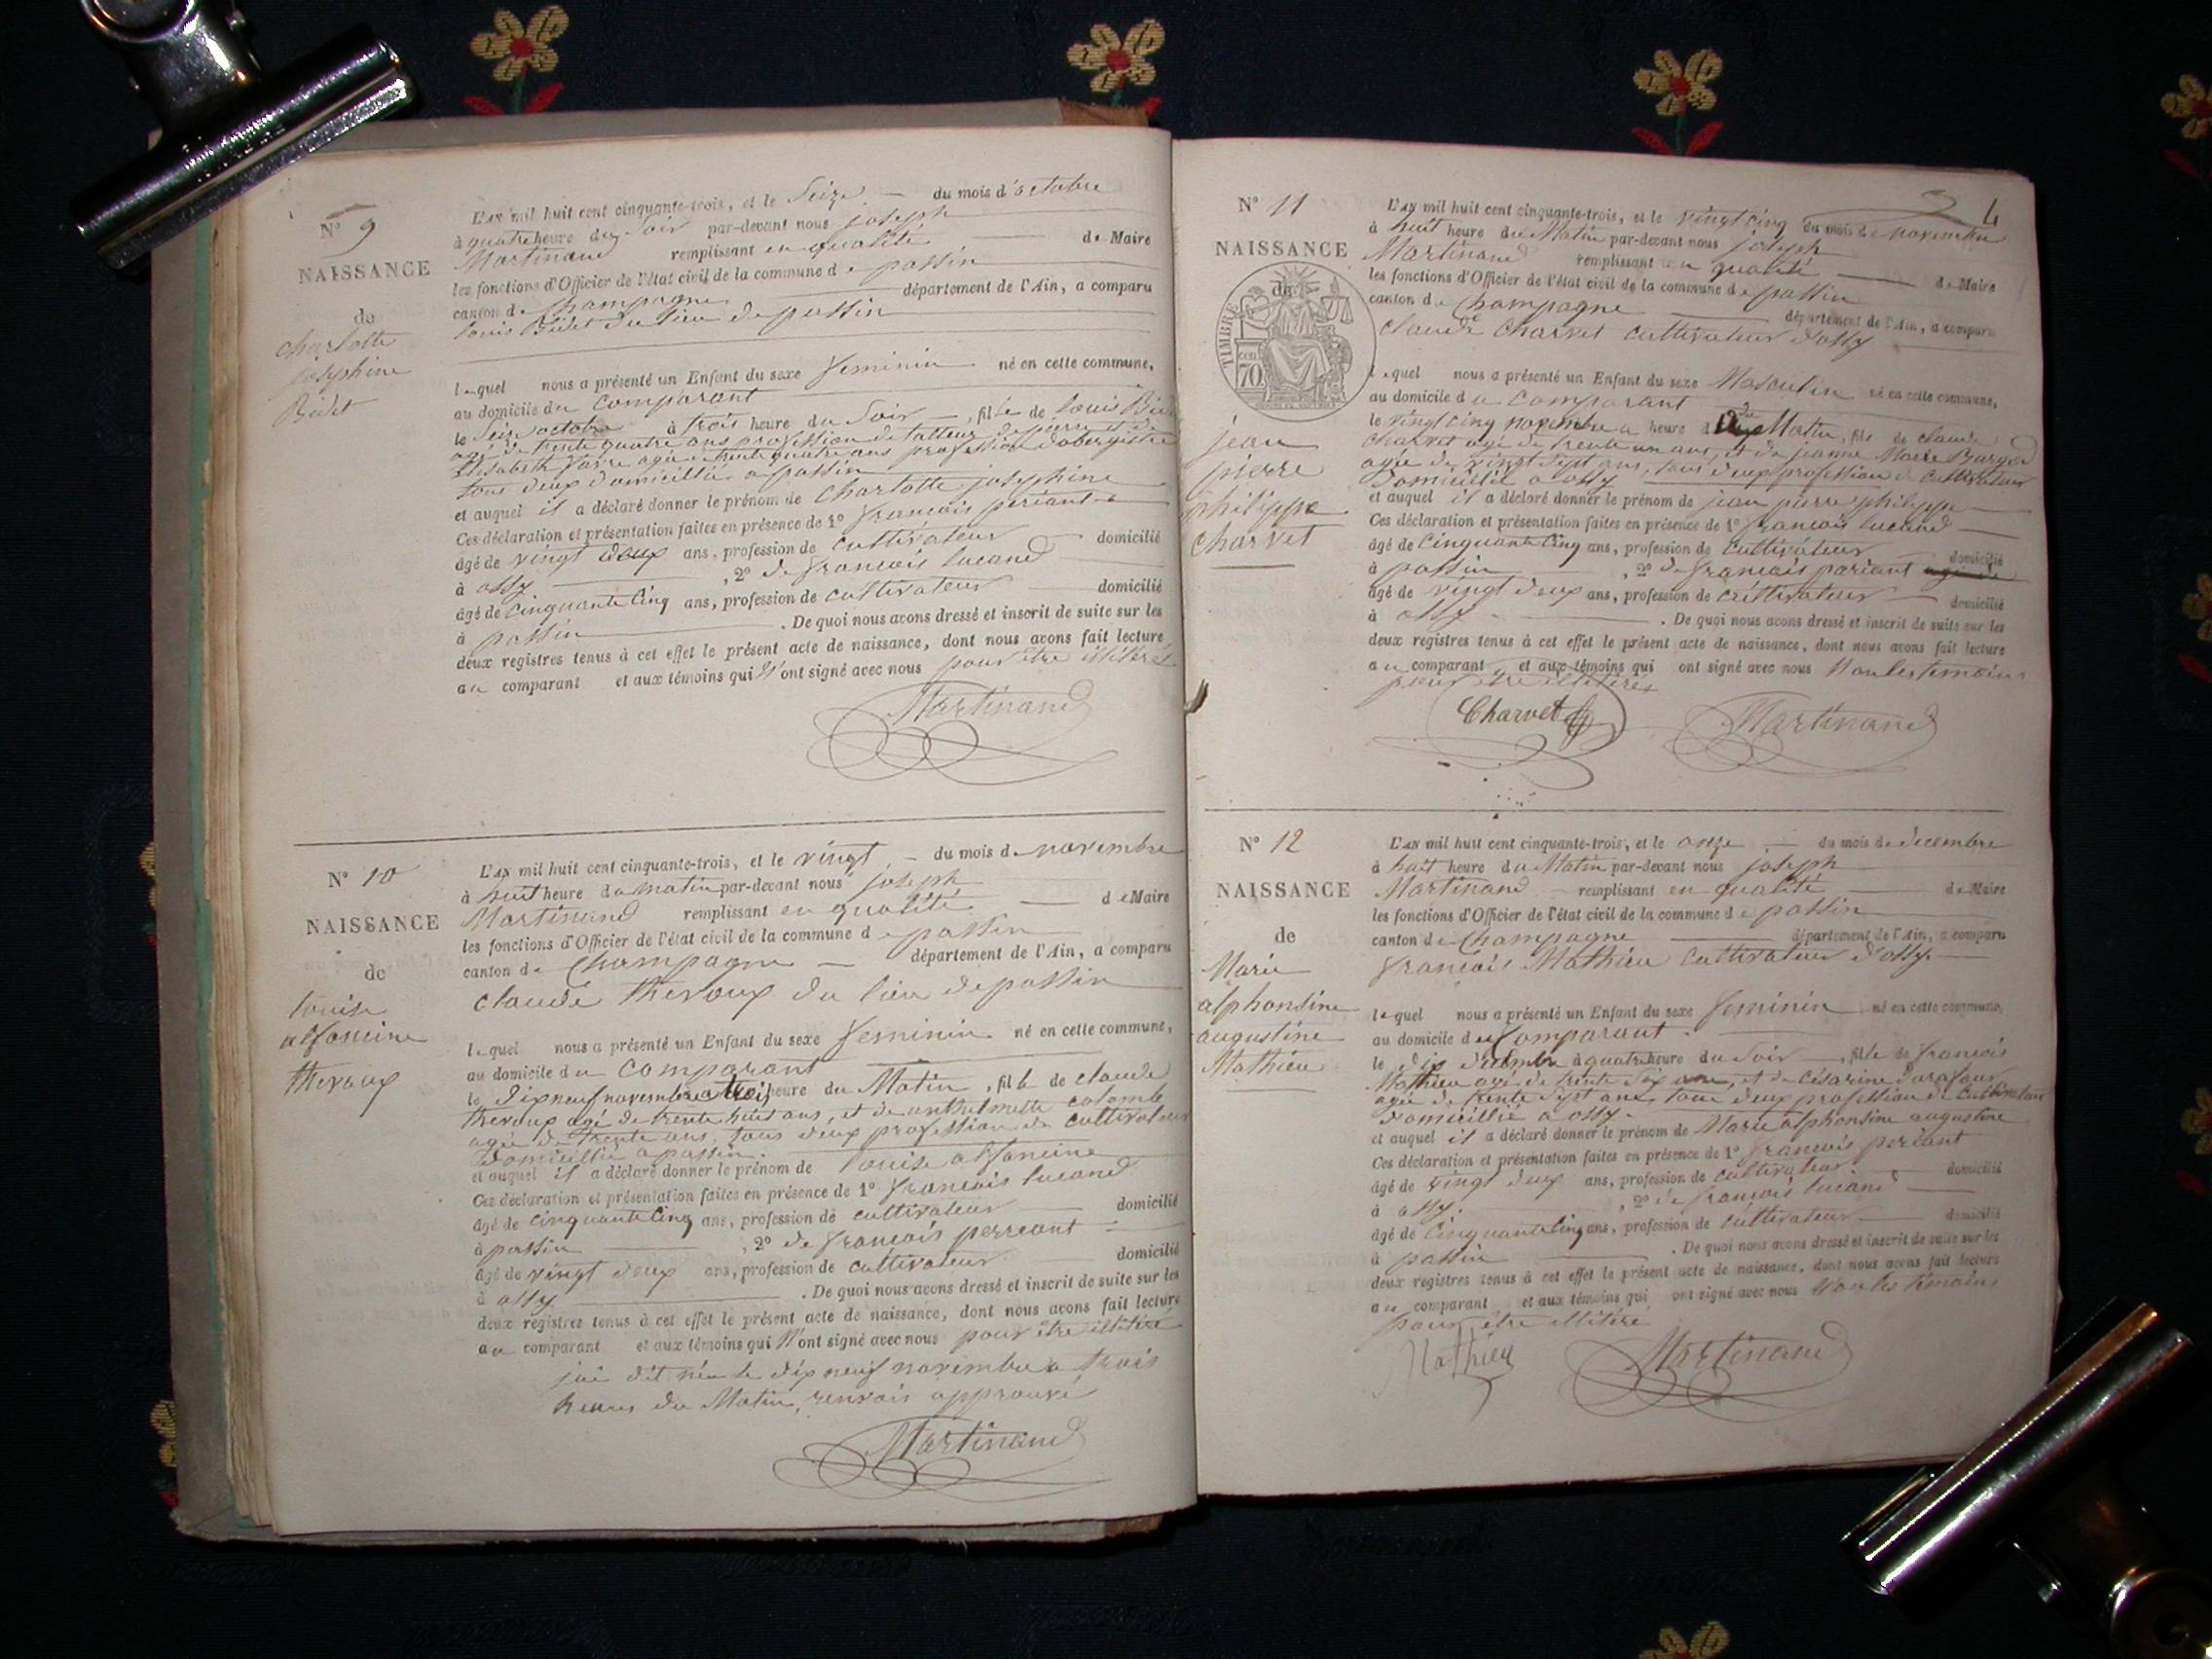 N° 9
NAISSANCE
de
charlotte
josephine
Bidet
L'AN mil huit cent cinquante-trois, et le Seize — du mois d'octobre
à quatre heure du Soir par-devant nous joseph
Martinand remplissant en qualité de Maire
les fonctions d'Officier de l'état civil de la commune de passin
canton de Champagne département de l'Ain, a comparu
louis Bidet du lieu de passin
lequel nous a présenté un Enfant du sexe feminin né en cette commune,
au domicile du comparant
le Seize octobre à trois heure du Soir —, fille de louis
agé de trente quatre ans profession de tailleur de pierre et de
Elisabeth agée de trente quatre ans profession
tous deux domicillié a passin
et auquel il a déclaré donner le prénom de Charlotte josephine
Ces déclaration et présentation faites en présence de 1° francois periant
âgé de vingt deux ans, profession de cultivateur domicilié
à ossy, 2° de francois lucand
âgé de cinquante cinq ans, profession de cultivateur domicilié
à passin. De quoi nous avons dressé et inscrit de suite sur les
deux registres tenus à cet effet le présent acte de naissance, dont nous avons fait lecture
au comparant et aux témoins qui n'ont signé avec nous pour être illitéré
Martinand
N° 10
NAISSANCE
de
louise
alfoncine
theroux
L'AN mil huit cent cinquante-trois, et le vingt — du mois de novembre
à huit heure du matin par-devant nous joseph
Martinand remplissant en qualité — de Maire
les fonctions d'Officier de l'état civil de la commune de passin
canton de Champagne — département de l'Ain, a comparu
claude theroux du lieu de passin
lequel nous a présenté un Enfant du sexe feminin né en cette commune,
au domicile du comparant
le dixneuf novembre a trois heure du Matin, fille de claude
theroux agé de trente huit ans, et de anthelmette colomb
agée de trente ans, tous deux profession de cultivateur
Domicillié a passin.
et auquel il a déclaré donner le prénom de louise alfoncine
Ces déclaration et présentation faites en présence de 1° francois lucand
âgé de cinquante cinq ans, profession de cultivateur domicilié
à passin, 2° de francois perreant
âgé de vingt deux ans, profession de cultivateur domicilié
à ossy. De quoi nous avons dressé et inscrit de suite sur les
deux registres tenus à cet effet le présent acte de naissance, dont nous avons fait lecture
au comparant et aux témoins qui n'ont signé avec nous pour être illitéré
dit née le dix neuf novembre a trois
heures du Matin, renvois approuvé
Martinand
4
N° 11
NAISSANCE
de
TIMBRE
cen 70
jean
pierre
philippe
charvet
L'AN mil huit cent cinquante-trois, et le vingt cinq du mois de novembre
à huit heure du Matin par-devant nous joseph
Martinand remplissant en qualité — de Maire
les fonctions d'Officier de l'état civil de la commune de passin
canton de Champagne département de l'Ain, a comparu
claude charvet cultivateur d'ossy
lequel nous a présenté un Enfant du sexe Masculin né en cette commune,
au domicile du comparant
le vingt cinq novembre a heure du Matin, fils de claude
charvet agé de trente un ans, et de jeanne Marie
agée de vingt sept ans, tous deux profession de cultivateur
Domicillié a ossy
et auquel il a déclaré donner le prénom de jean pierre philippe
Ces déclaration et présentation faites en présence de 1° francois lucand
âgé de cinquante cinq ans, profession de cultivateur domicilié
à passin, 2° de francois pariant
âgé de vingt deux ans, profession de cultivateur domicilié
à ossy. De quoi nous avons dressé et inscrit de suite sur les
deux registres tenus à cet effet le présent acte de naissance, dont nous avons fait lecture
au comparant et aux témoins qui ont signé avec nous Non les temoins
pour être illitérés
Charvet Martinand
N° 12
NAISSANCE
de
Marie
alphonsine
augustine
Mathieu
L'AN mil huit cent cinquante-trois, et le onze — du mois de décembre
à huit heure du Matin par-devant nous joseph
Martinand — remplissant en qualité — de Maire
les fonctions d'Officier de l'état civil de la commune de passin
canton de Champagne département de l'Ain, a comparu
francois Mathieu cultivateur d'ossy
lequel nous a présenté un Enfant du sexe feminin né en cette commune,
au domicile du Comparant
le dix décembre à quatre heure du Soir —, fille de francois
Mathieu agé de trente six ans, et de césarine
agée de trente sept ans, tous deux profession de cultivateur
Domicillié a ossy.
et auquel il a déclaré donner le prénom de Marie alphonsine augustine
Ces déclaration et présentation faites en présence de 1° francois periant
âgé de vingt deux ans, profession de cultivateur domicilié
à ossy, 2° de francois lucand
âgé de cinquante cinq ans, profession de cultivateur domicilié
à passin. De quoi nous avons dressé et inscrit de suite sur les
deux registres tenus à cet effet le présent acte de naissance, dont nous avons fait lecture
au comparant et aux témoins qui ont signé avec nous Non les témoins
pour être illitéré
Mathieu Martinand